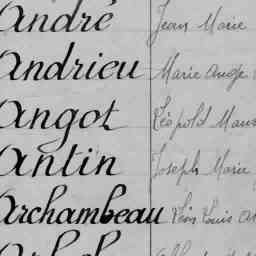 André Jean Marie
Andrieu Marie Ange
Angot Léopold
Antin Joseph Marie
Archambeau Louis